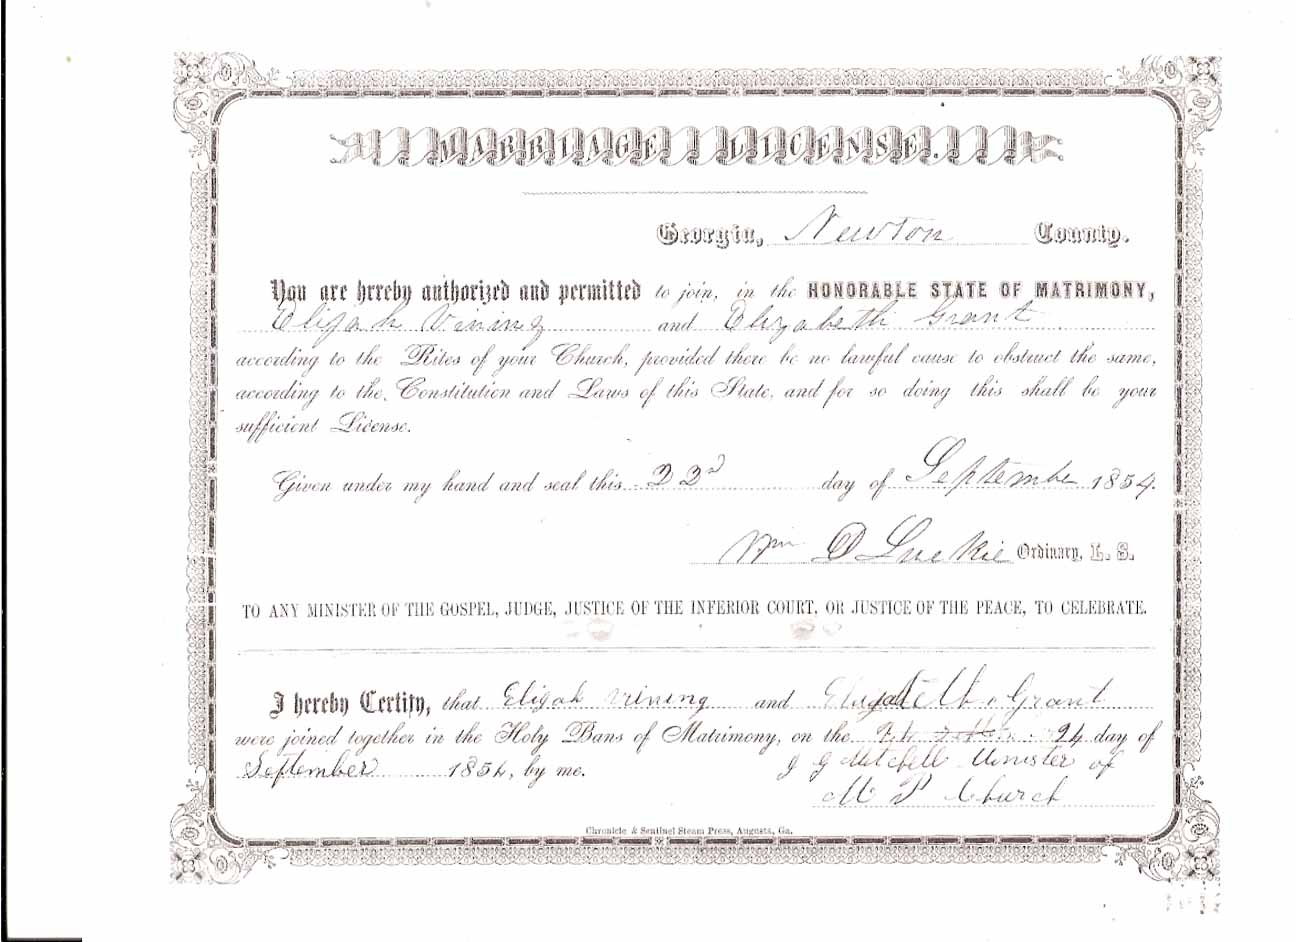 MARRIAGE LICENSE.
Georgia, Newton County.
You are hereby authorized and permitted to join, in the HONORABLE STATE OF MATRIMONY,
Elijah Vining and Elizabeth Grant
according to the Rites of your Church, provided there be no lawful cause to obstruct the same,
according to the Constitution and Laws of this State, and for so doing this shall be your
sufficient License.
Given under my hand and seal this 22d day of September 1854.
Wm D Luckie Ordinary, L. S.
TO ANY MINISTER OF THE GOSPEL, JUDGE, JUSTICE OF THE INFERIOR COURT, OR JUSTICE OF THE PEACE, TO CELEBRATE.
I hereby Certify, that Elijah Vining and Elizabeth Grant
were joined together in the Holy Bans of Matrimony, on the 24 day of
September 1854, by me. J G Mitchell Minister of
M P Church
Chronicle & Sentinel Steam Press, Augusta, Ga.